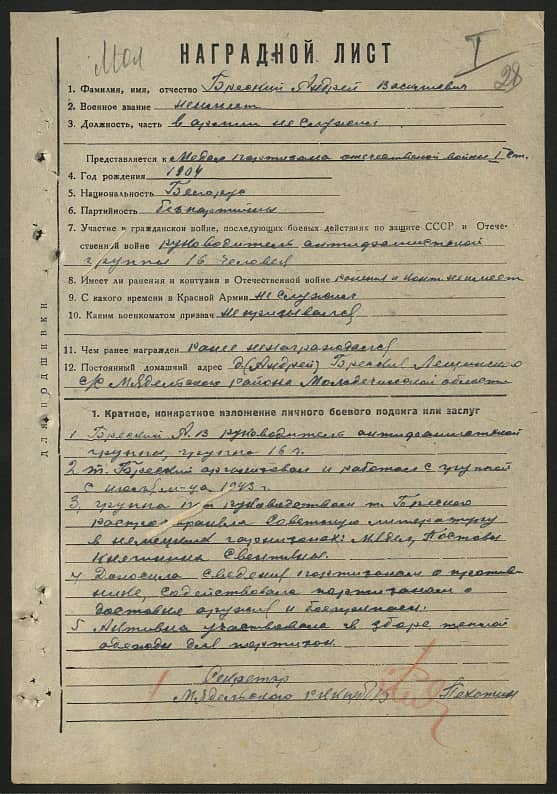 Мол
I
28
НАГРАДНОЙ ЛИСТ
1. Фамилия, имя, отчество Бреский Андрей Васильевич
2. Военное звание не имеет
3. Должность, часть в армии не служил
Представляется к Медали партизана отечественной войны I ст.
4. Год рождения 1904
5. Национальность Белорус
6. Партийность безпартийный
7. Участие в гражданской войне, последующих боевых действиях по защите СССР и Отече-
ственной войне руководитель антифашистской
группы 16 человек
8. Имеет ли ранения и контузии в Отечественной войне ранения и конт. не имеет
9. С какого времени в Красной Армии не служил
10. Каким военкоматом призван не призывался
11. Чем ранее награжден ранее не награждался
12. Постоянный домашний адрес д. (Андрей) Бреский
с/с Мядельского района Молодечненской области
для подшивки
1. Краткое, конкретное изложение личного боевого подвига или заслуг
1 Бреский А.В руководитель антифашистской
группы, группа 16 ч.
2 т. Бреский организовал и работал с группой
с м-ца 1943 г.
3, группа под руководством т. Бреского
распространяла Советскую литературу
в немецких гарнизонах: Мядел, Поставы
Княгинина Свентяны.
4 Доносила сведения партизанам о против-
нике, содействовала партизанам о
доставке оружия и боеприпасы.
5 Активна участвовала в зборе теплой
одежды для партизан.
Секретарь
Мядельского РК КП(б)Б